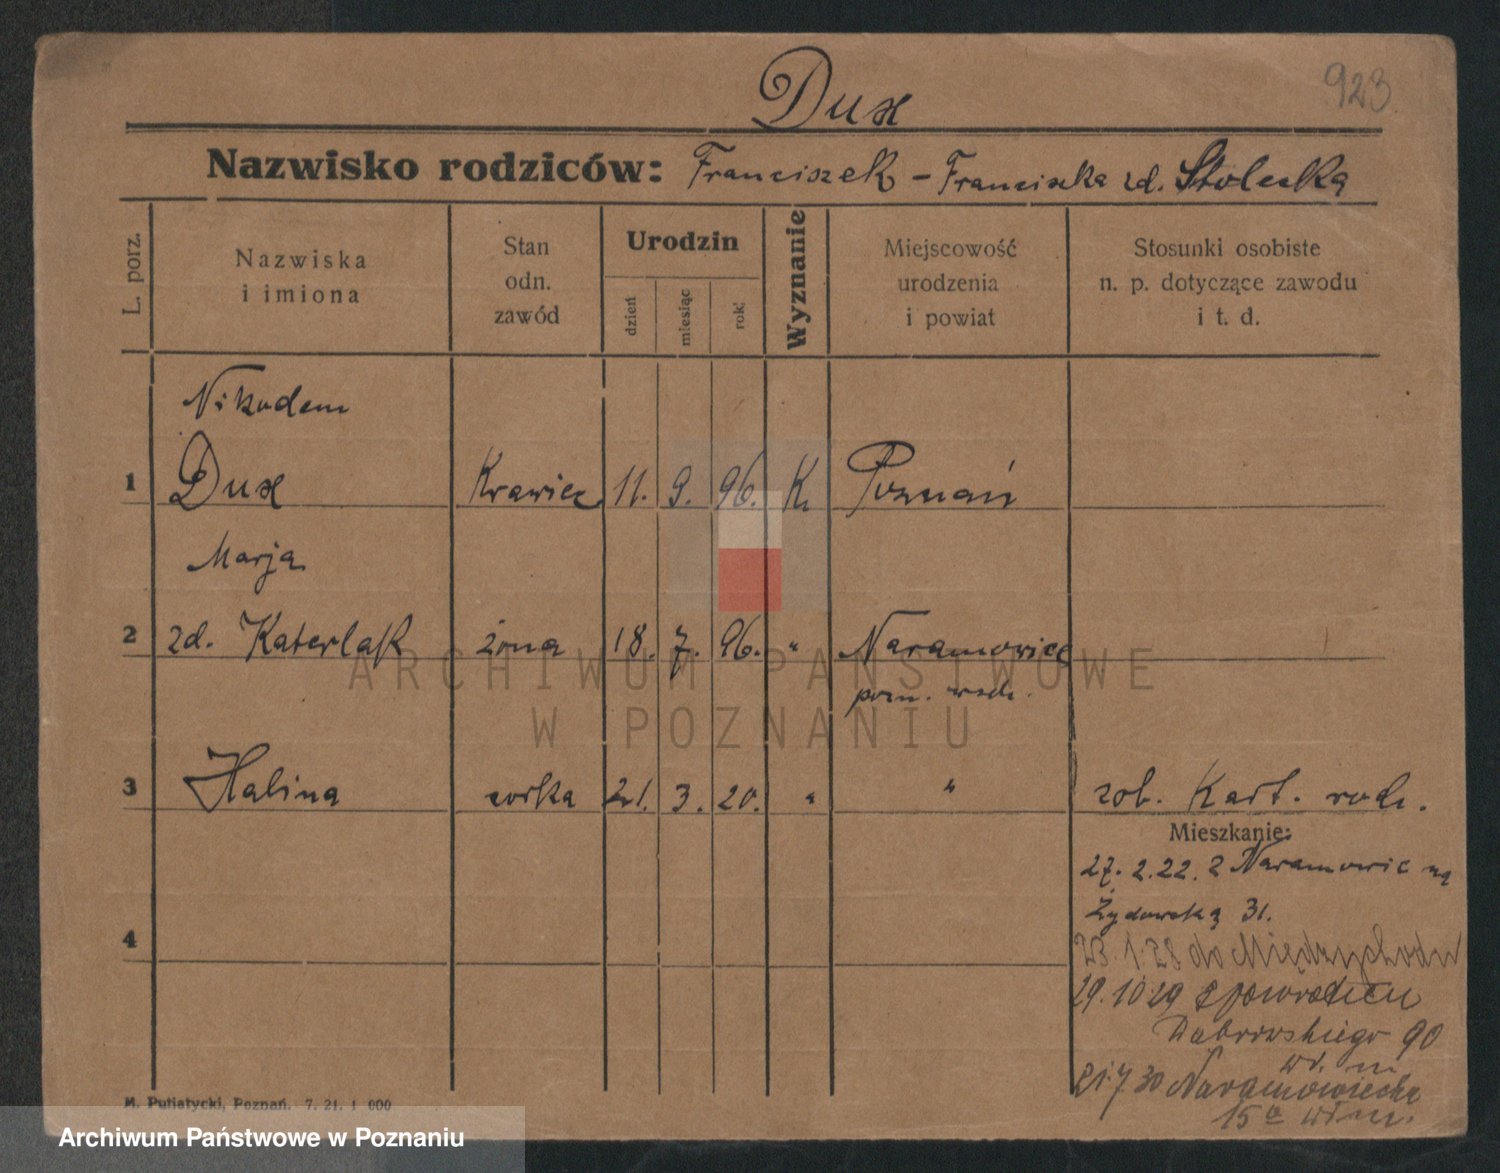 923
Dux
Nazwisko rodziców: Franciszek - Franciszka zd. Stolecka
L. porz.
Nazwiska i imiona
Stan odn. zawód
Urodzin
dzień
miesiąc
rok
Wyznanie
Miejscowość urodzenia i powiat
Stosunki osobiste n. p. dotyczące zawodu i t. d.
Nikodem
1 Dux Krawiec 11. 9. 96. K. Poznań
Marja
2 zd. Katerlak żona 18. 7. 96. " Naramowice
pozn. wsch.
3 Halina córka 21. 3. 20. " " zob. Kart. rodz.
Mieszkanie:
27. 2. 22. z Naramowic na
Żydowską 31.
4
23.1.28 do Międzychodu
29.10.29 z powrotem
Dąbrowskiego 90
21.7.30 Naramowicka
15a
M. Putiatycki, Poznań. 7. 21. 1 000
ARCHIWUM PAŃSTWOWE
W POZNANIU
Archiwum Państwowe w Poznaniu